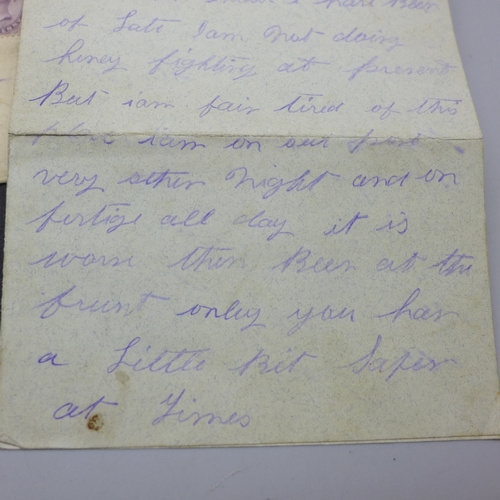 of Late I am not doing
heney fighting at present
But iam fair tired of this
place iam on out post
very other night and on
fertige all day it is
worse then Been at the
frunt onley you har
a Little Bit Safer
at Times